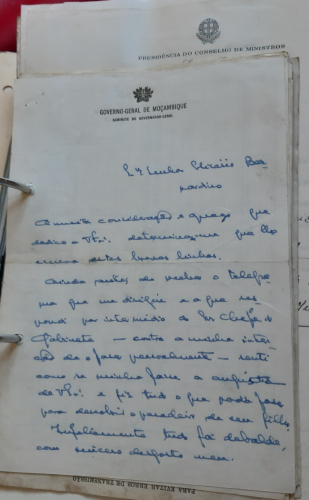 PRESIDÊNCIA DO CONSELHO DE MINISTROS
GOVERNO-GERAL DE MOÇAMBIQUE
GABINETE DO GOVERNADOR-GERAL
Exmo Senhor
A muita consideração e apreço que
dedico a V. Exa. determinaram que lhe
envie estas breves linhas.
Ainda antes de receber o telegra-
ma que me dirigiu e a que res-
pondi por intermédio do Sr. Chefe do
Gabinete — contra a minha inten-
ção de o fazer pessoalmente — senti
como se minha fosse a angústia
de V. Exa. e fiz tudo o que podia fazer
para descobrir o paradeiro de seu filho.
Infelizmente tudo foi debalde,
com sincero desgosto meu.
PARA EVITAR ERROS DE TRANSMISSÃO